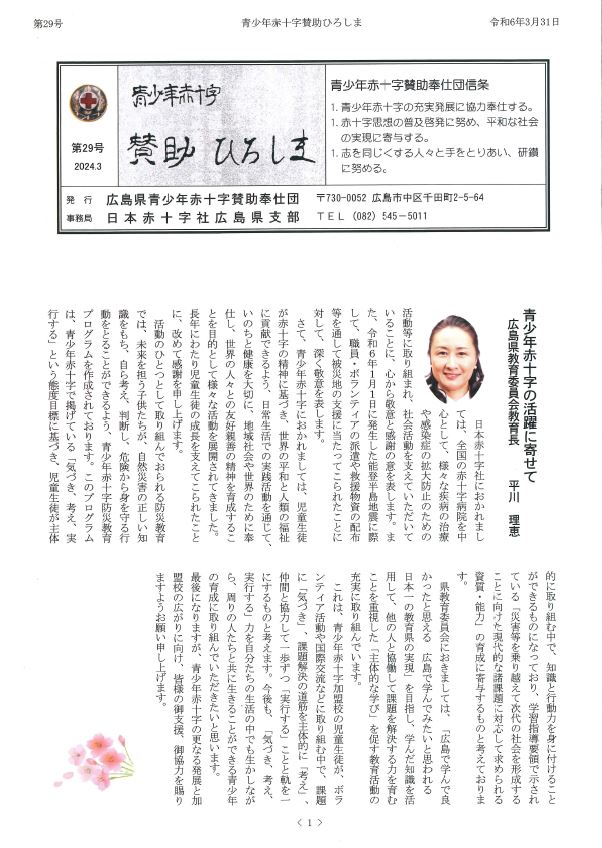 第29号
青少年赤十字賛助ひろしま
令和6年3月31日
青少年赤十字
賛助 ひろしま
第29号
2024.3
青少年赤十字賛助奉仕団信条
1. 青少年赤十字の充実発展に協力奉仕する。
1. 赤十字思想の普及啓発に努め、平和な社会
の実現に寄与する。
1. 志を同じくする人々と手をとりあい、研鑽
に努める。
発 行 広島県青少年赤十字賛助奉仕団 〒730-0052 広島市中区千田町2-5-64
事務局 日本赤十字社広島県支部 TEL (082) 545-5011
青少年赤十字の活躍に寄せて
広島県教育委員会教育長 平川 理恵
日本赤十字社におかれまし
ては、全国の赤十字病院を中
心として、様々な疾病の治療
や感染症の拡大防止のための
活動等に取り組まれ、社会活動を支えていただいて
いることに、心から敬意と感謝の意を表します。ま
た、令和6年1月1日に発生した能登半島地震に際
して、職員・ボランティアの派遣や救援物資の配布
等を通して被災地の支援に当たってこられたことに
対して、深く敬意を表します。
さて、青少年赤十字におかれましては、児童生徒
が赤十字の精神に基づき、世界の平和と人類の福祉
に貢献できるよう、日常生活での実践活動を通じて、
いのちと健康を大切に、地域社会や世界のために奉
仕し、世界の人々との友好親善の精神を育成するこ
とを目的として様々な活動を展開されてきました。
長年にわたり児童生徒の成長を支えてこられたこと
に、改めて感謝を申し上げます。
活動のひとつとして取り組んでおられる防災教育
では、未来を担う子供たちが、自然災害の正しい知
識をもち、自ら考え、判断し、危険から身を守る行
動をとることができるよう、青少年赤十字防災教育
プログラムを作成されております。このプログラム
は、青少年赤十字で掲げている「気づき、考え、実
行する」という態度目標に基づき、児童生徒が主体
的に取り組む中で、知識と行動力を身に付けること
ができるものになっており、学習指導要領で示され
ている「災害等を乗り越えて次代の社会を形成する
ことに向けた現代的な諸課題に対応して求められる
資質・能力」の育成に寄与するものと考えておりま
す。
県教育委員会におきましては、「広島で学んで良
かったと思える 広島で学んでみたいと思われる
日本一の教育県の実現」を目指し、学んだ知識を活
用して、他の人と協働して課題を解決する力を育む
ことを重視した「主体的な学び」を促す教育活動の
充実に取り組んでいます。
これは、青少年赤十字加盟校の児童生徒が、ボラ
ンティア活動や国際交流などに取り組む中で、課題
に「気づき」、課題解決の道筋を主体的に「考え」、
仲間と協力して一歩ずつ「実行する」ことと軌を一
にするものと考えます。今後も、「気づき、考え、
実行する」力を自分たちの生活の中でも生かしなが
ら、周りの人たちと共に生きることができる青少年
の育成に取り組んでいただきたいと思います。
最後になりますが、青少年赤十字の更なる発展と加
盟校の広がりに向け、皆様の御支援、御協力を賜り
ますようお願い申し上げます。
< 1 >